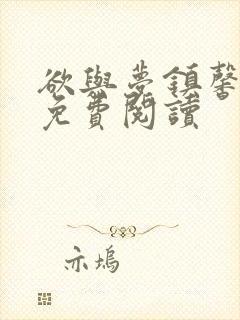 欲與夢鎖馨
免費閱讀
亦塢